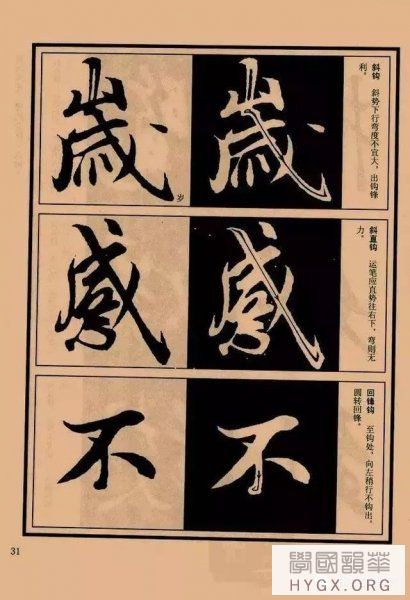 歲
歲
岁
斜钩 斜势下行弯度不宜大,出钩锋
利。
感
感
斜直钩 运笔应直势往右下,弯则无
力。
不
不
回锋钩 至钩处,向左稍行不钩出,
圆转回锋。
31
學國韻華
HYGX.ORG